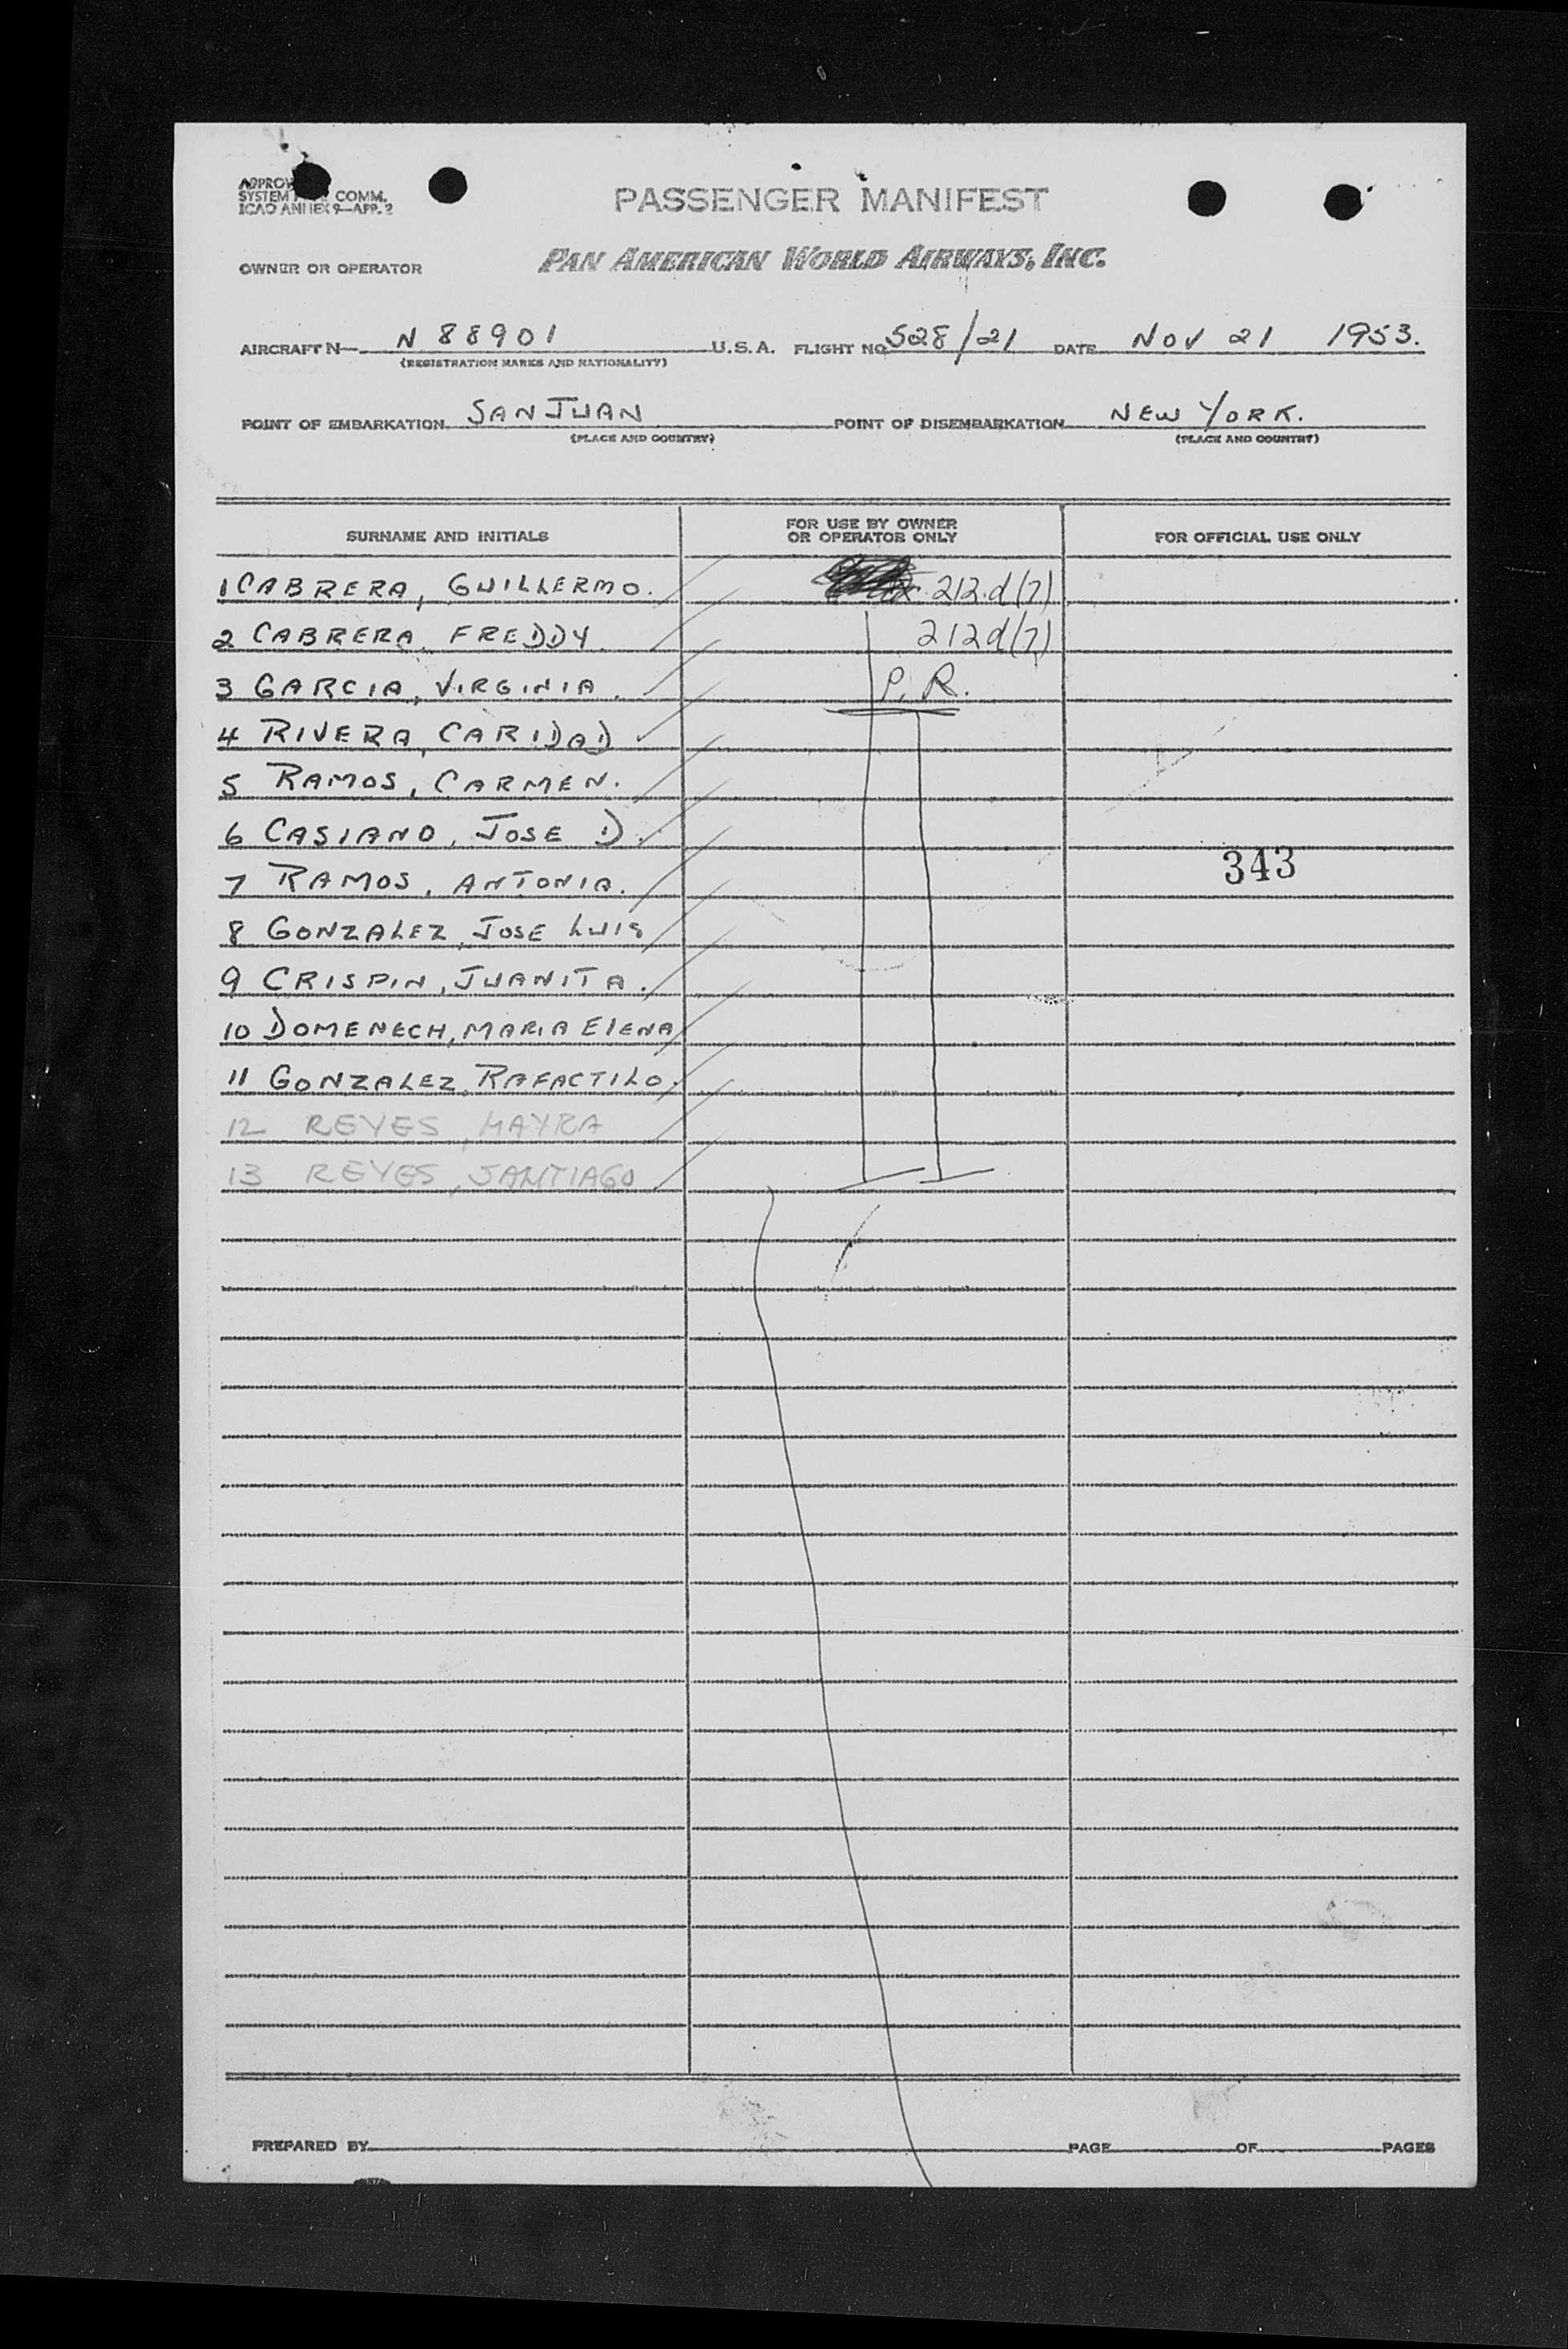 PASSENGER MANIFEST
SYSTEM COMM.
ICAO ANNEX 9—APP. 2
OWNER OR OPERATOR PAN AMERICAN WORLD AIRWAYS, INC.
AIRCRAFT N— N 88901 U.S.A. FLIGHT NO 528/21 DATE NOV 21 1953.
(REGISTRATION MARKS AND NATIONALITY)
POINT OF EMBARKATION SAN JUAN POINT OF DISEMBARKATION NEW YORK.
(PLACE AND COUNTRY) (PLACE AND COUNTRY)
SURNAME AND INITIALS FOR USE BY OWNER OR OPERATOR ONLY FOR OFFICIAL USE ONLY
1 CABRERA, GUILLERMO. 212.d(7)
2 CABRERA, FREDDY. 212d(7)
3 GARCIA, VIRGINIA. P.R.
4 RIVERA, CARIDAD
5 RAMOS, CARMEN.
6 CASIANO, JOSE D.
343
7 RAMOS, ANTONIA.
8 GONZALEZ, JOSE LUIS
9 CRISPIN, JUANITA.
10 DOMENECH, MARIA ELENA
11 GONZALEZ, RAFACTILO.
12 REYES, MAYRA
13 REYES, SANTIAGO
PREPARED BY PAGE OF PAGES